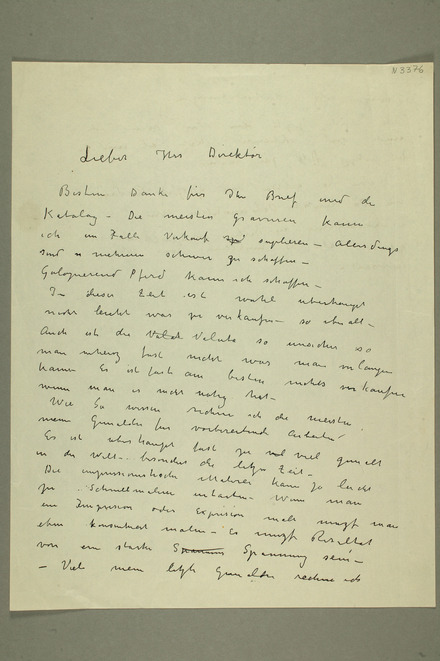 N 3376
Lieber Herr Direktör
Besten Danke für Ihr Brief und die
Katalog – Die meisten Gravuren kann
ich im Falle Verkauf supleren – Allerdings
sind mehrere schwer zu schaffen –
Galoperend Pferd kann ich schaffen –
In dieser Zeit ist wohl überhaupt
nicht leicht was zu verkaufen – so überall –
Auch ist die Valut Valuta so unsicher so
man fast nicht was man verlangen
kann Es ist fast am besten nichts verkaufen
wenn man es nicht nötig hat –
Wie Sie wissen rechne ich die meisten
meine Gemälde für vorbereitende Arbeiten
Es ist überhaupt fast zu viel gemalt
in die Welt – besonders die letzte Zeit –
Die impressionistische kann ja leicht
zu Schnellmalerei entarten – Wenn man
ein Impression oder Expression malt muss man
eben konsentriert malen – Es muss Resultat
von ein starke Spannung sein –
– Viel mein letzte Gemälde rechne ich